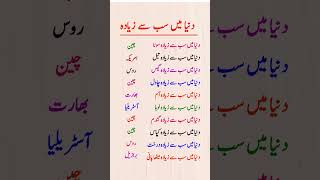 دنیا میں سب سے زیادہ
دنیا میں سب سے زیادہ سونا چین
دنیا میں سب سے زیادہ تیل امریکہ
دنیا میں سب سے زیادہ گیس روس
دنیا میں سب سے زیادہ چاول چین
دنیا میں سب سے زیادہ آم بھارت
دنیا میں سب سے زیادہ لوہا آسٹریلیا
دنیا میں سب سے زیادہ گندم چین
دنیا میں سب سے زیادہ کپاس چین
دنیا میں سب سے زیادہ درخت روس
دنیا میں سب سے زیادہ میٹھا پانی برازیل